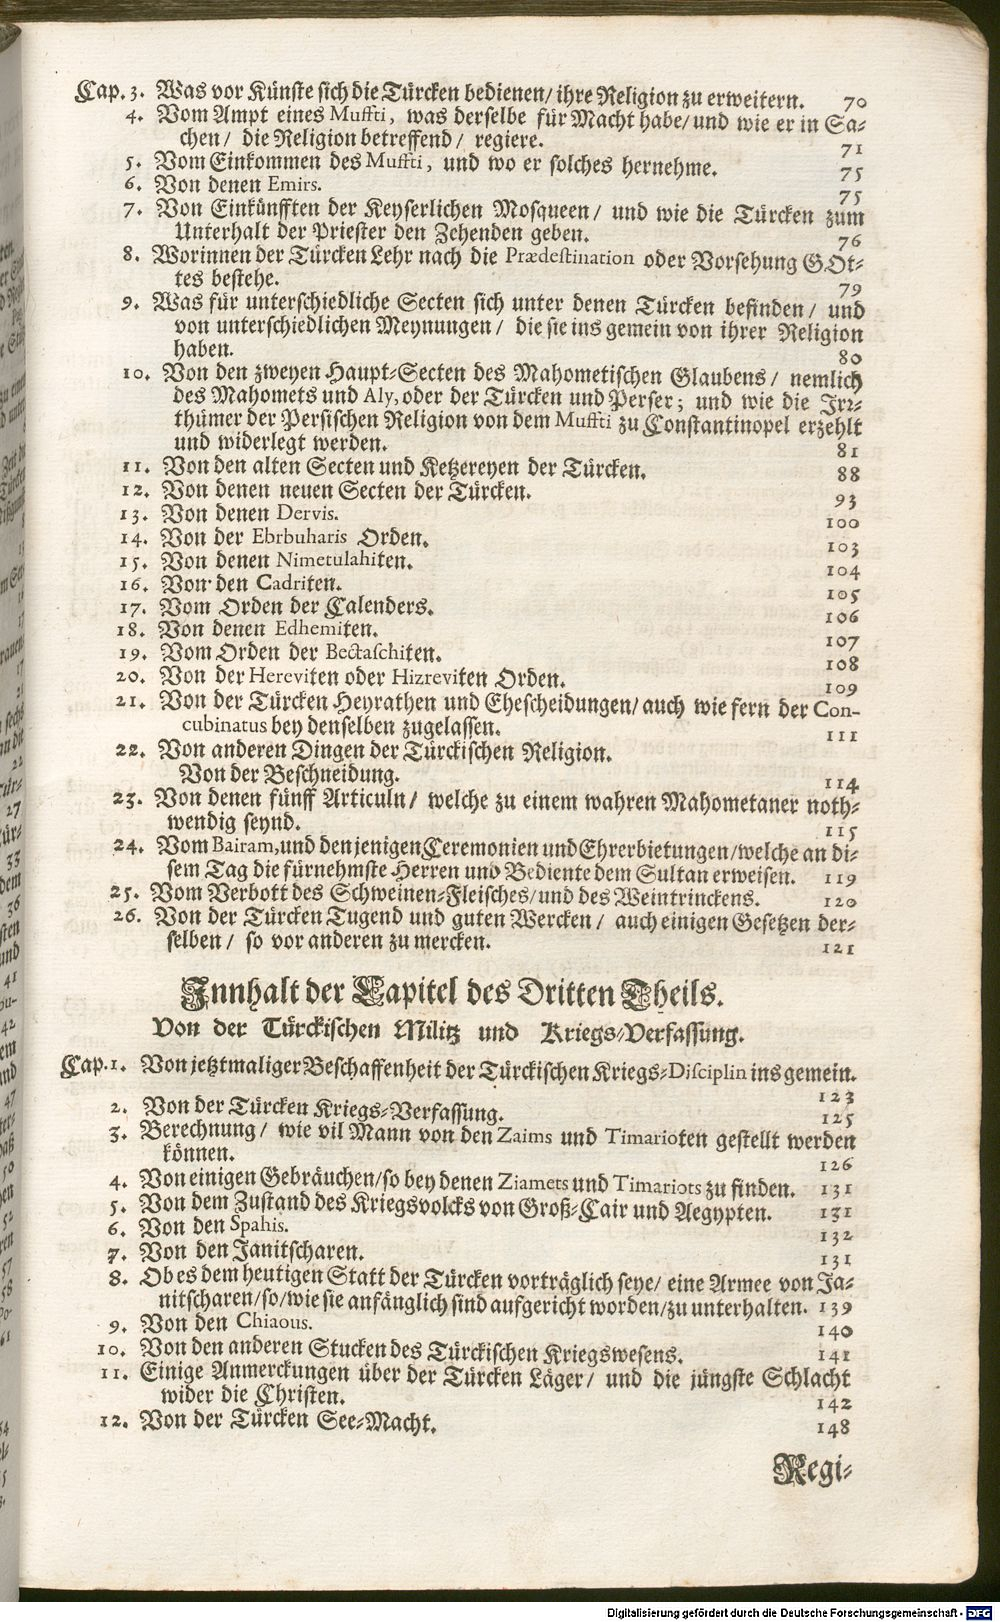 Cap. 3. Was vor Künste sich die Türcken bedienen/ ihre Religion zu erweitern. 70
4. Vom Ampt eines Muffti, was derselbe für Macht habe/ und wie er in Sa-
chen/ die Religion betreffend/ regiere. 71
5. Vom Einkommen des Muffti, und wo er solches hernehme. 75
6. Von denen Emirs. 75
7. Von Einkünfften der Keyserlichen Mosqueen/ und wie die Türcken zum
Unterhalt der Priester den Zehenden geben. 76
8. Worinnen der Türcken Lehr nach die Prædestination oder Vorsehung GOt-
tes bestehe. 79
9. Was für unterschiedliche Secten sich unter denen Türcken befinden/ und
von unterschiedlichen Meynungen/ die sie ins gemein von ihrer Religion
haben. 80
10. Von den zweyen Haupt-Secten des Mahometischen Glaubens/ nemlich
des Mahomets und Aly, oder der Türcken und Perser; und wie die Irr-
thümer der Persischen Religion von dem Muffti zu Constantinopel erzehlt
und widerlegt werden. 81
11. Von den alten Secten und Ketzereyen der Türcken. 88
12. Von denen neuen Secten der Türcken. 93
13. Von denen Dervis. 100
14. Von der Ebrbuharis Orden. 103
15. Von denen Nimetulahiten. 104
16. Von den Cadriten. 105
17. Vom Orden der Calenders. 106
18. Von denen Edhemiten. 107
19. Vom Orden der Bectaschiten. 108
20. Von der Hereviten oder Hizreviten Orden. 109
21. Von der Türcken Heyrathen und Ehescheidungen/ auch wie fern der Con-
cubinatus bey denselben zugelassen. 111
22. Von anderen Dingen der Türckischen Religion.
Von der Beschneidung. 114
23. Von denen fünff Articuln/ welche zu einem wahren Mahometaner noth-
wendig seynd. 115
24. Vom Bairam, und den jenigen Ceremonien und Ehrerbietungen/ welche an di-
sem Tag die fürnehmste Herren und Bediente dem Sultan erweisen. 119
25. Vom Verbott des Schweinen-Fleisches/ und des Weintrinckens. 120
26. Von der Türcken Tugend und guten Wercken/ auch einigen Gesetzen der-
selben/ so vor anderen zu mercken. 121
Innhalt der Capitel des Dritten Theils.
Von der Türckischen Militz und Kriegs-Verfassung.
Cap. 1. Von jetztmaliger Beschaffenheit der Türckischen Kriegs-Disciplin ins gemein.
123
2. Von der Türcken Kriegs-Verfassung. 125
3. Berechnung/ wie vil Mann von den Zaims und Timarioten gestellt werden
können. 126
4. Von einigen Gebräuchen/ so bey denen Ziamets und Timariots zu finden. 131
5. Von dem Zustand des Kriegsvolcks von Groß-Cair und Aegypten. 131
6. Von den Spahis. 132
7. Von den Janitscharen. 131
8. Ob es dem heutigen Statt der Türcken vorträglich seye/ eine Armee von Ja-
nitscharen/ so/ wie sie anfänglich sind aufgericht worden/ zu unterhalten. 139
9. Von den Chiaous. 140
10. Von den anderen Stucken des Türckischen Kriegswesens. 141
11. Einige Anmerckungen über der Türcken Läger/ und die jüngste Schlacht
wider die Christen. 142
12. Von der Türcken See-Macht. 148
Regi-
Digitalisierung gefördert durch die Deutsche Forschungsgemeinschaft - DFG